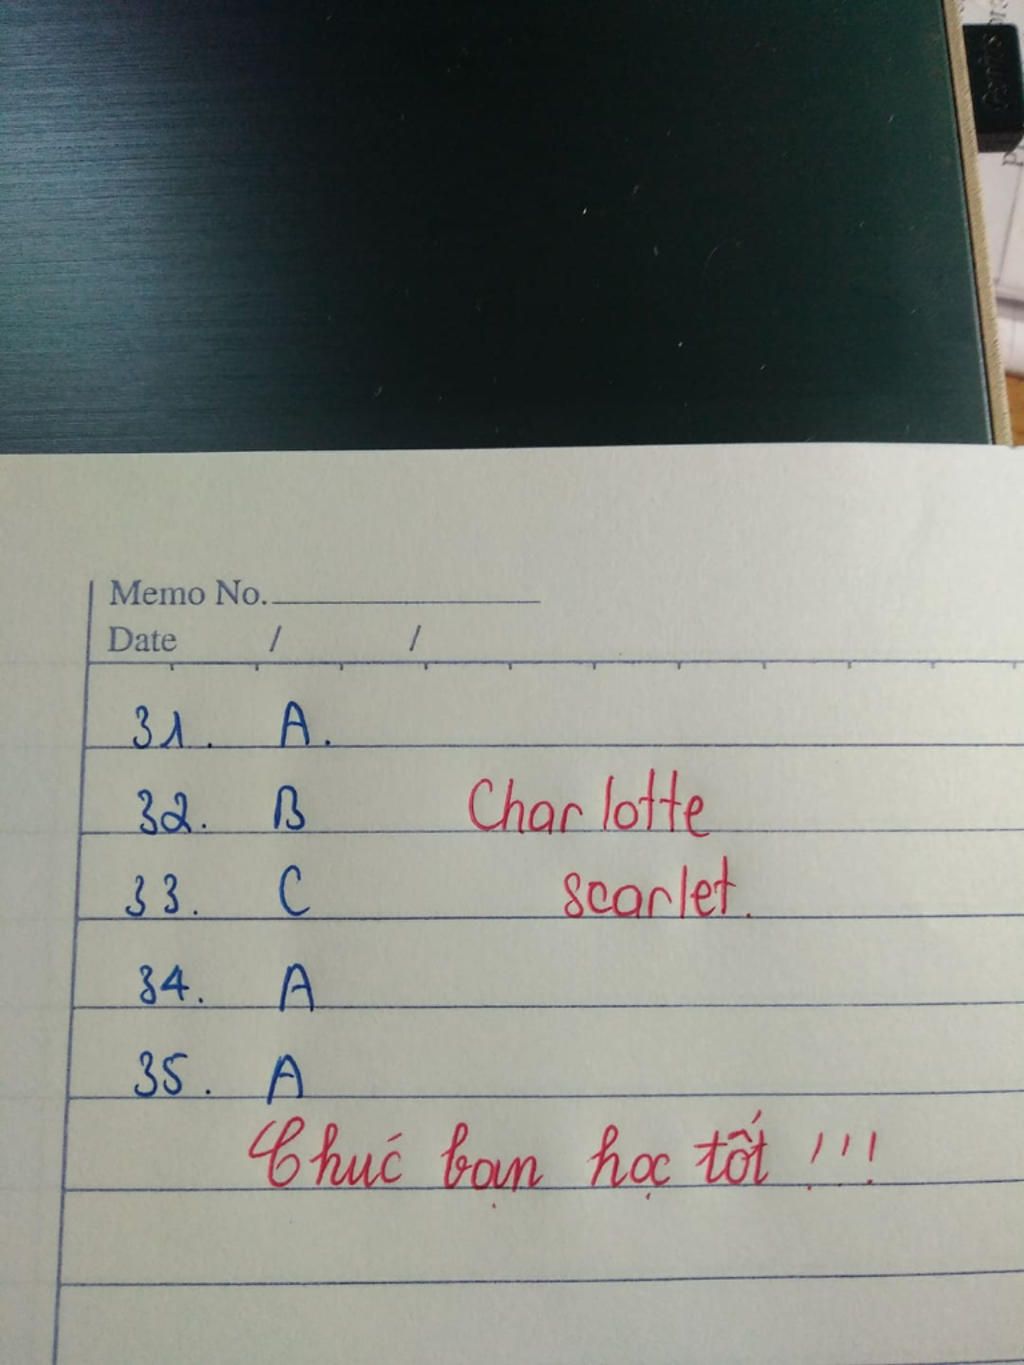 Genius
Memo No.
Date / /
31. A.
32. B Charlotte
33. C scarlet.
34. A
35. A
Chúc bạn học tốt !!!